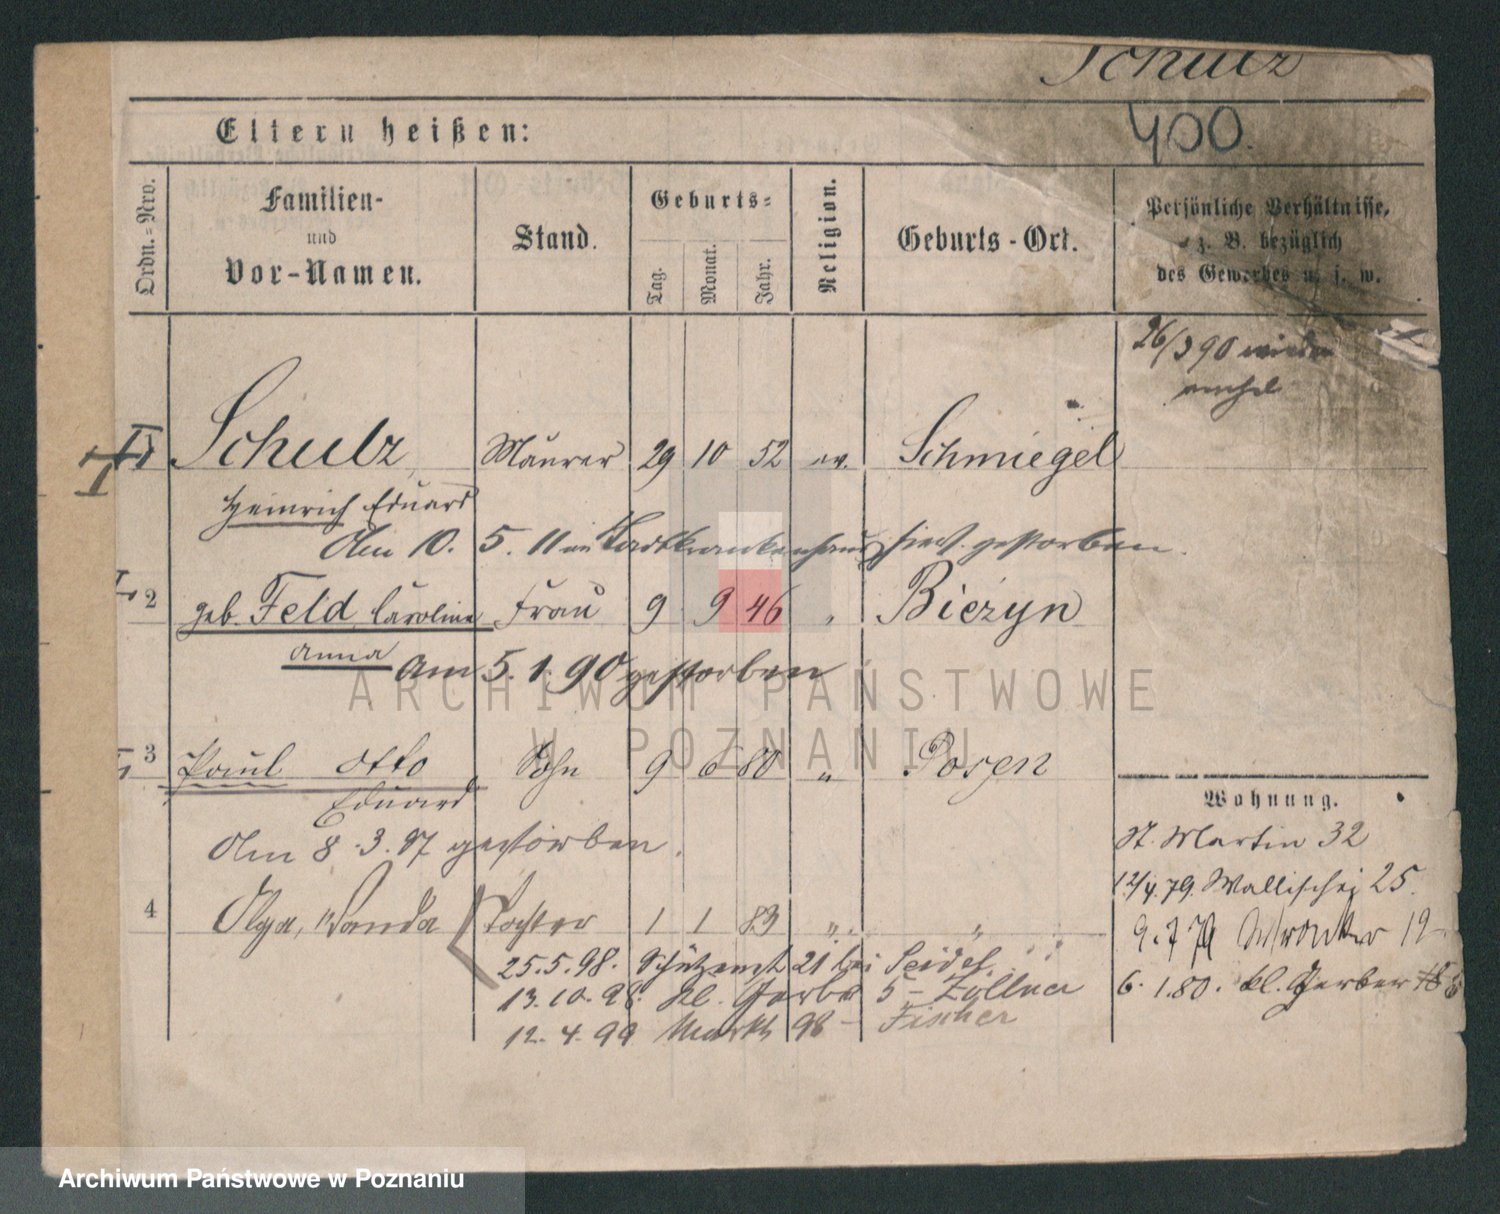 Schulz
400.
Eltern heißen:
Ordn.=Nro.
Familien-
und
Vor-Namen.
Stand.
Geburts=
Tag.
Monat.
Jahr.
Religion.
Geburts-Ort.
Persönliche Verhältnisse,
z. B. bezüglich
des Gewerbes u. s. w.
26/3 90 wieder
Schulz Maurer 29 10 52 ev. Schmiegel
Heinrich Eduard
Am 10. 5. 11 im Stadtkrankenhaus hies. gestorben.
2 geb. Feld Caroline Frau 9 9 46 " Bieżyn
Anna Am 5. 1. 90 gestorben
ARCHIWUM PAŃSTWOWE
W POZNANIU
3 Paul Otto Sohn 9 6 80 " Posen
Eduard
Am 8. 3. 97 gestorben.
4 Olga, Wanda Tochter 1 1 83 " "
25.5.98. Schützenst 21 bei Seidel
13.10.98. kl. Gerber 5 - Zöllner
12.4.99 Markt 98 - Fischer
Wohnung.
St. Martin 32
12/4.79. Wallischei 25.
9.7 79 Wronker 19
6.1.80. kl. Gerber
Archiwum Państwowe w Poznaniu